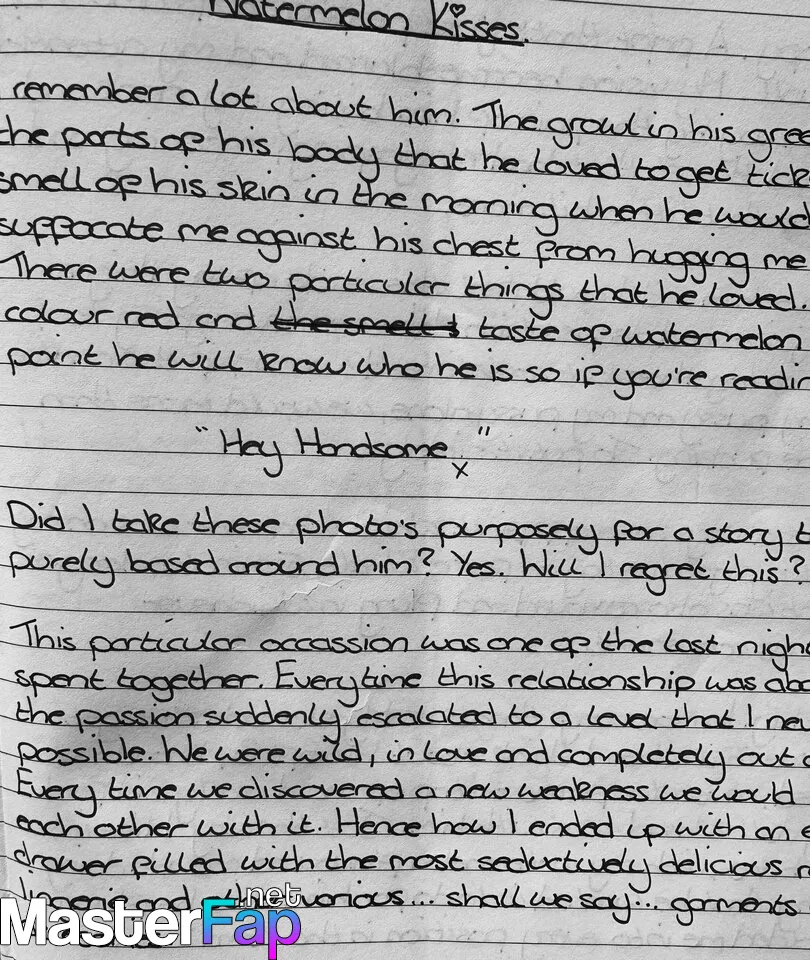 Watermelon Kisses.
remember a lot about him. The growl in his gree
the parts of his body that he loved to get tick
smell of his skin in the morning when he would
suffocate me against his chest from hugging me
There were two particular things that he loved.
colour red and the smell taste of watermelon
point he will know who he is so if you're readin
"Hey Handsome x"
Did I take these photo's purposely for a story t
purely based around him? Yes. Will I regret this?
This particular occassion was one of the last nigh
spent together. Everytime this relationship was abo
the passion suddenly escalated to a level that I nev
possible. We were wild, in love and completely out o
Every time we discovered a new weakness we would
each other with it. Hence how I ended up with an e
drawer filled with the most seductively delicious r
lingerie and other various... shall we say... garments
.net
MasterFap